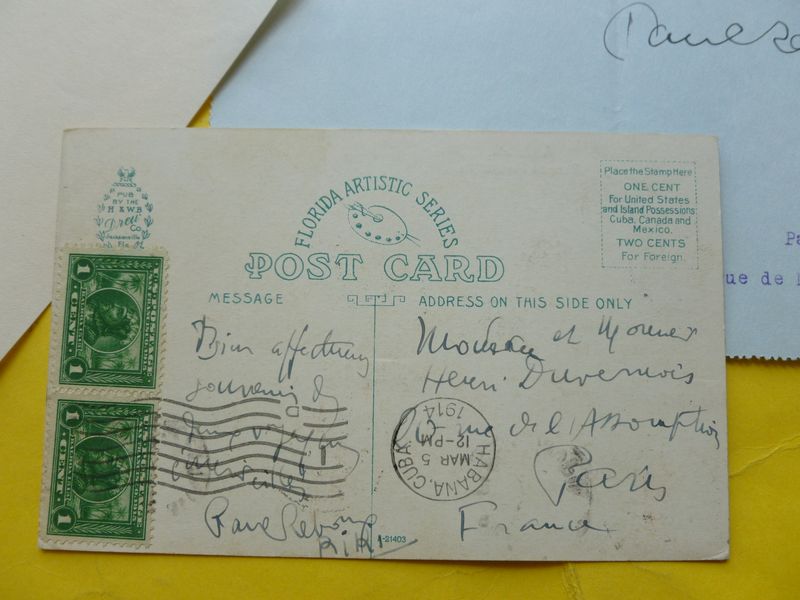 Paul
PUB
BY THE
H & W B
Drew
Co
Jacksonville
Fla
FLORIDA ARTISTIC SERIES
POST CARD
Place the Stamp Here
ONE CENT
For United States
and Island Possessions
Cuba, Canada and
Mexico.
TWO CENTS
For Foreign.
MESSAGE
ADDRESS ON THIS SIDE ONLY
1 CENT 1
1 CENT 1
Bien affectueux
souvenir de
Monsieur et
Henri Duvernois
rue de l'Assomption
Paris
France
HABANA, CUBA
MAR 5
12-PM
1914
A-21403
Pa
ue de